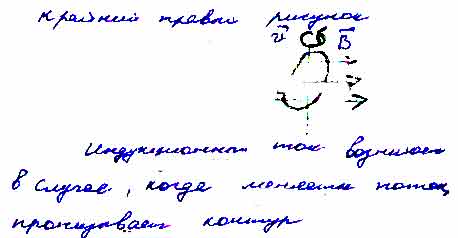 Крайний правый рисунок
Индукционный ток возникает
в случае, когда меняется поток,
пронизывает контур